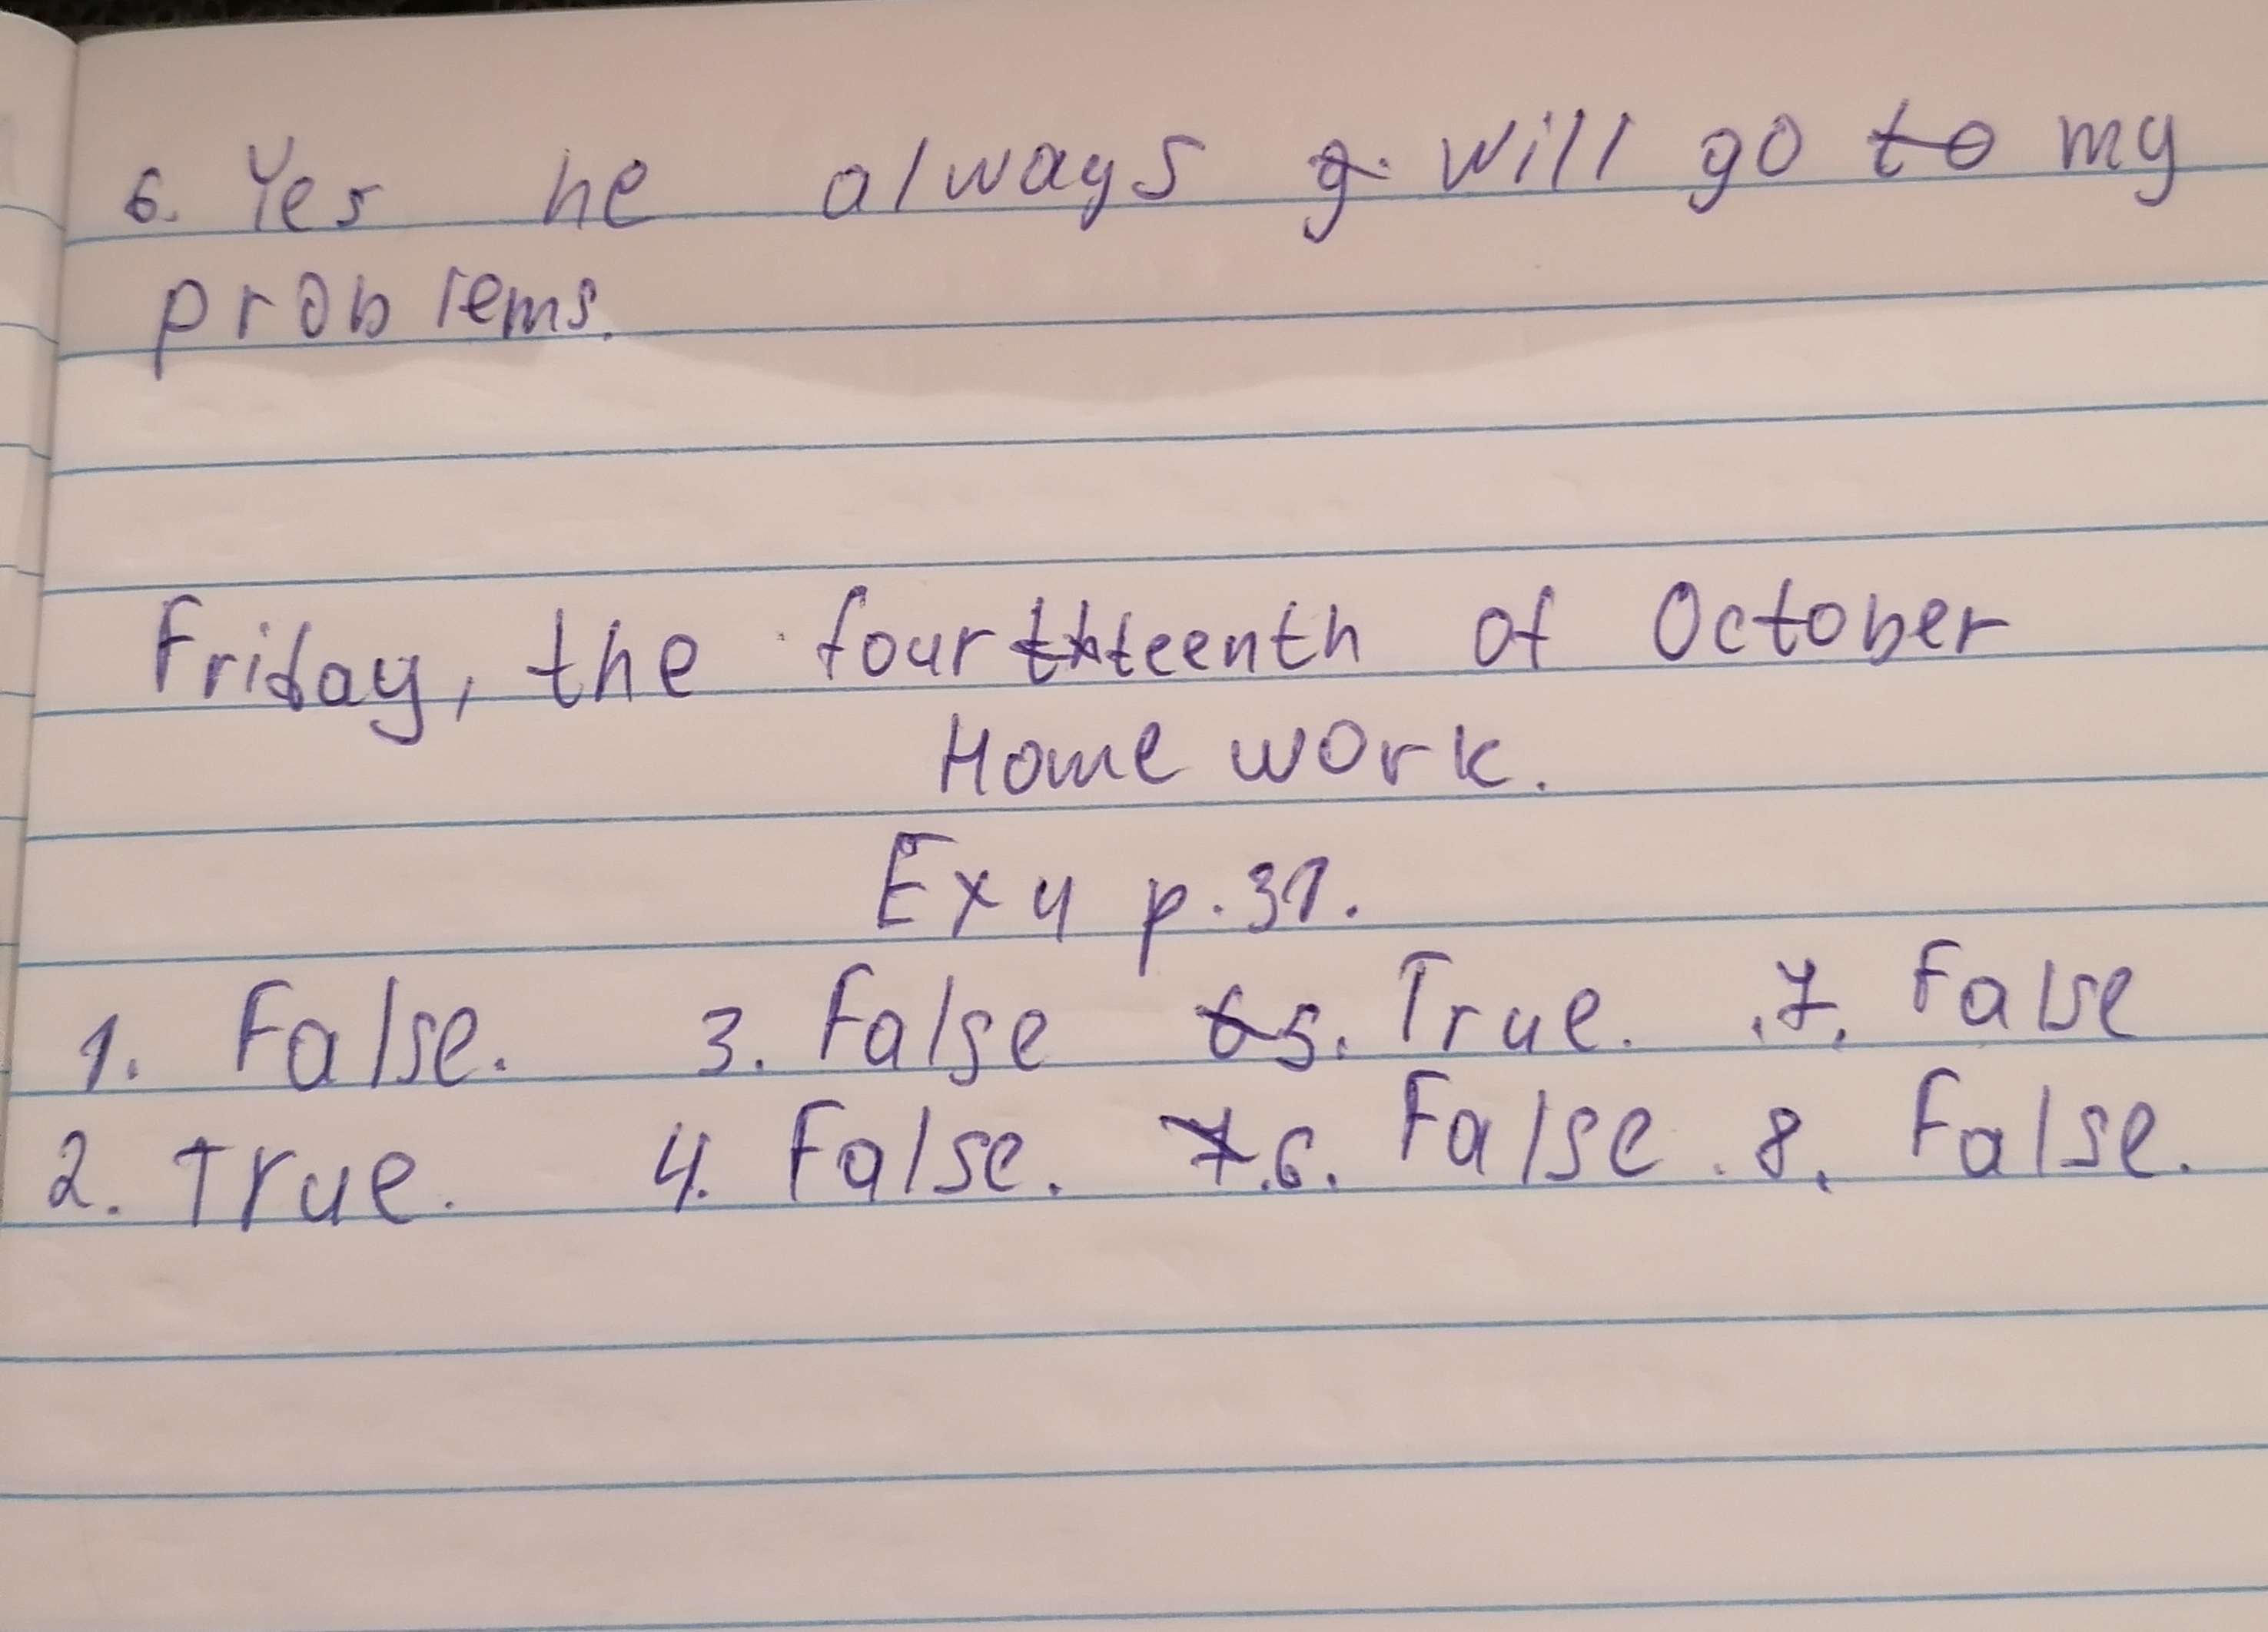 6. Yes he always will go to my
problems.
Friday, the fourteenth of October
Home work.
Ex 4 p. 31.
1. False. 3. False 5. True. 7. False
2. True. 4. False. 6. False. 8. False.